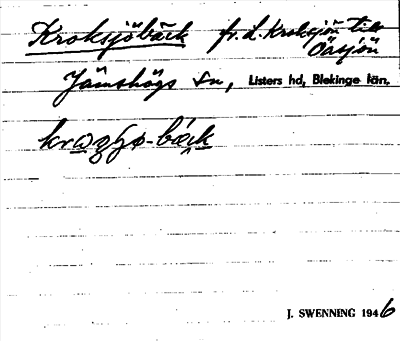 Kroksjöbäck fr. L. Kroksjön till
Oäsjön
Jämshögs sn, Listers hd, Blekinge län.
-bäck
J. SWENNING 1946